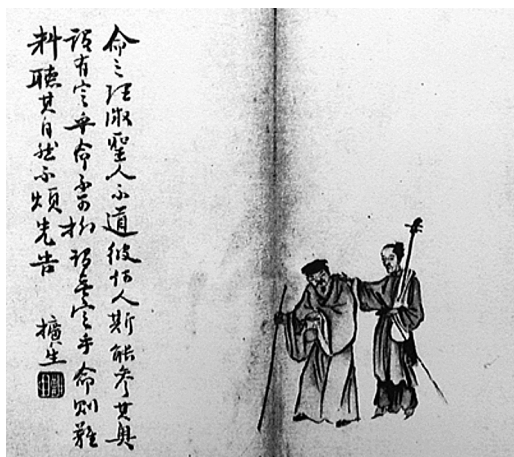 命之理微聖人不道彼何人斯能參其奧
謂有定乎命不可拗謂無定乎命則難
料聽其自然不煩先告
擴生